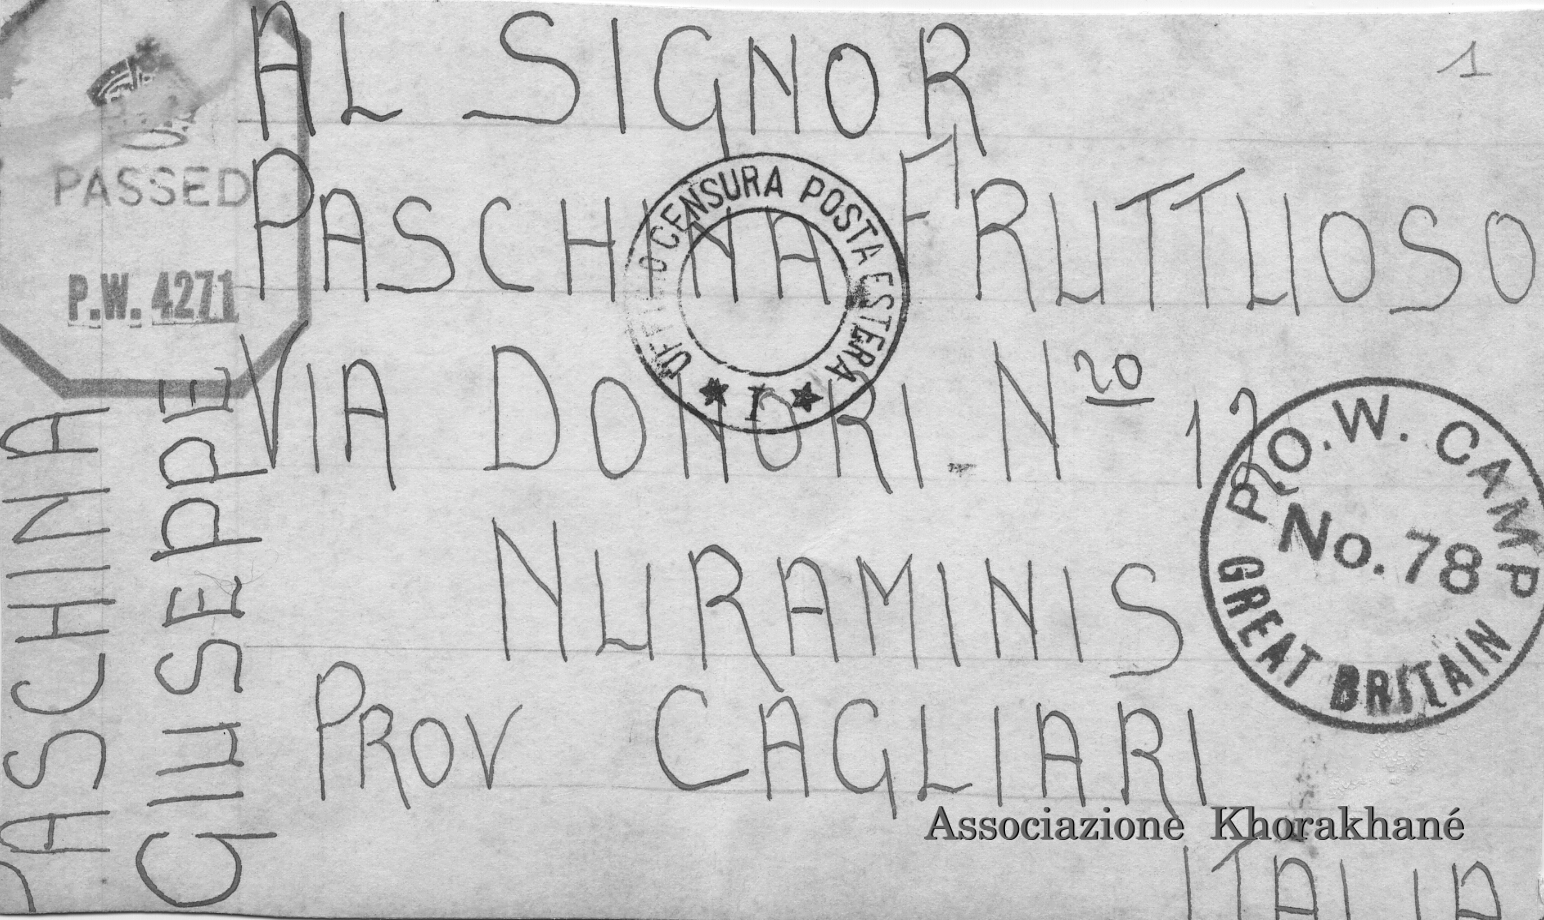 AL SIGNOR
1
PASCHINA FRUTTUOSO
VIA DONORI Nro 12
NURAMINIS
PROV CAGLIARI
ITALIA
PASCHINA
GIUSEPPE
PASSED
P.W. 4271
UFFICIO CENSURA POSTA ESTERA
★ I ★
P.O.W. CAMP
No. 78
GREAT BRITAIN
Associazione Khorakhané